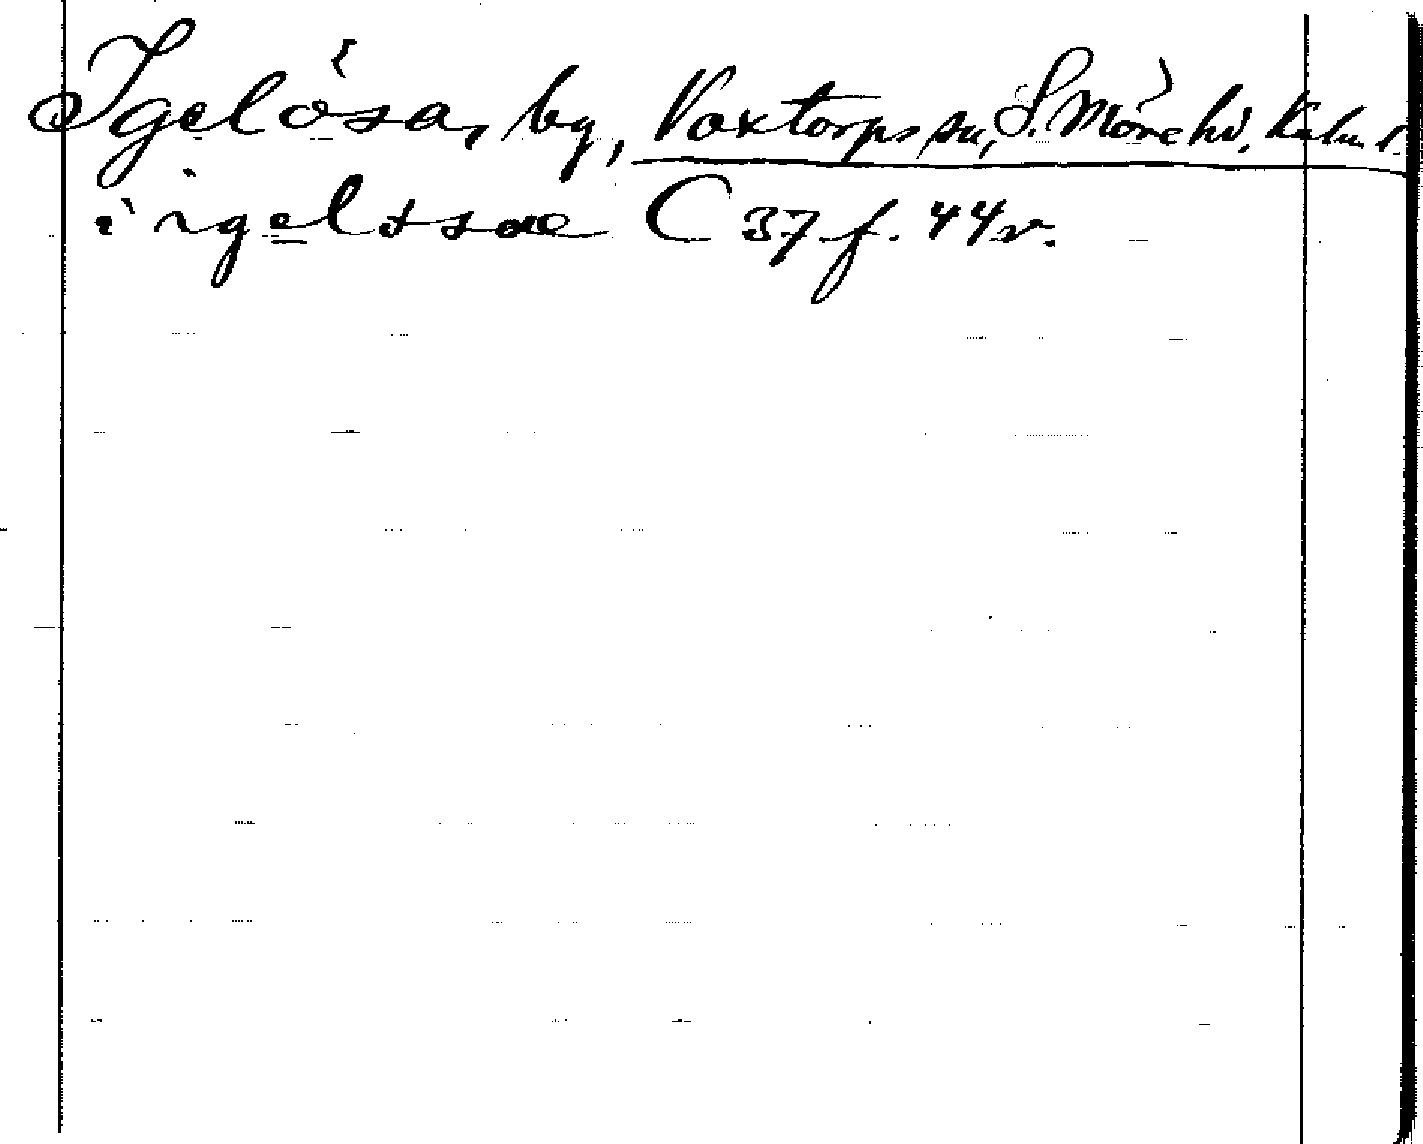 Igelösa, by, Voxtorps sn, S. Möre hd, Kalm. l.
i igeløsæ C 37 f. 44 v.